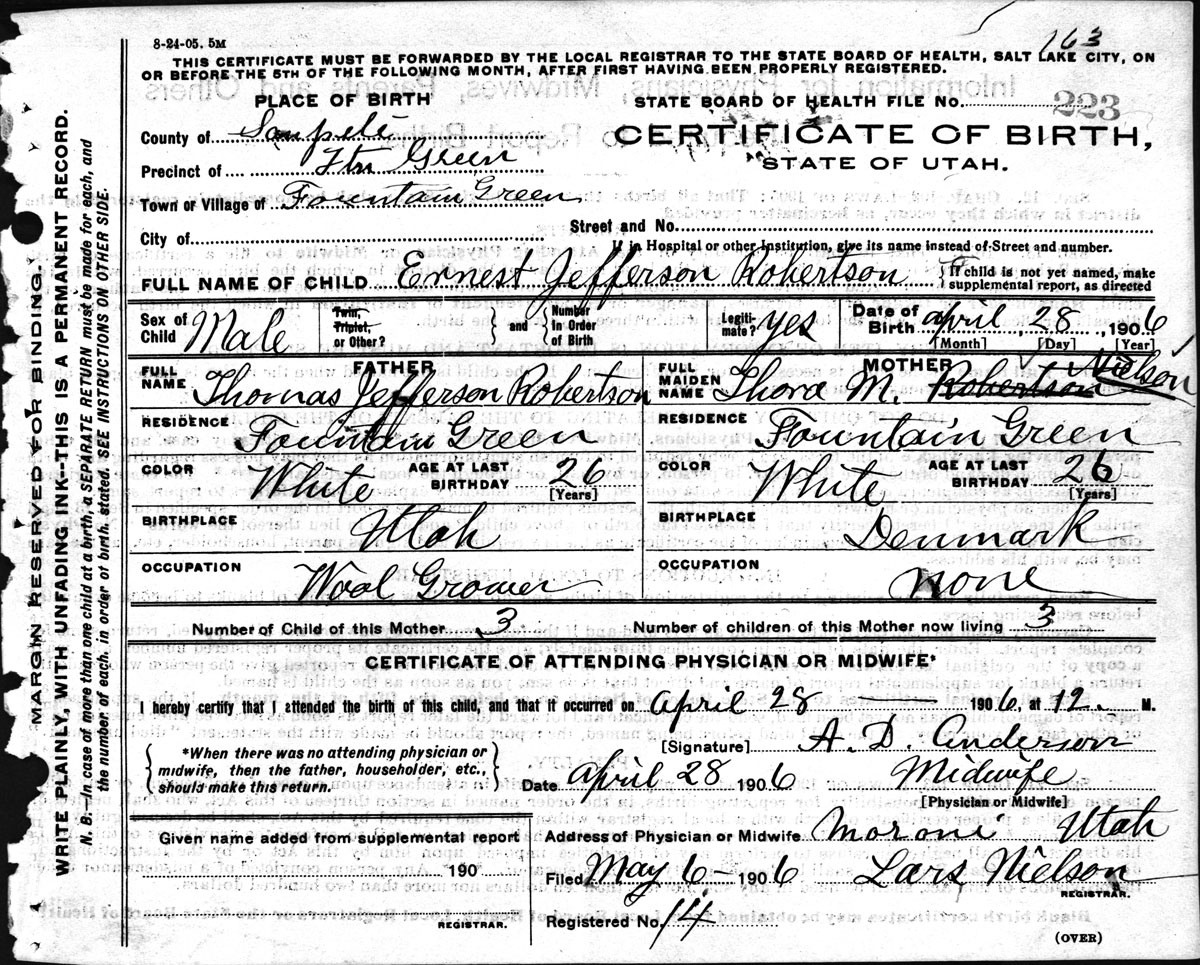 8-24-05. 5M
163
THIS CERTIFICATE MUST BE FORWARDED BY THE LOCAL REGISTRAR TO THE STATE BOARD OF HEALTH, SALT LAKE CITY, ON
OR BEFORE THE 5TH OF THE FOLLOWING MONTH, AFTER FIRST HAVING BEEN PROPERLY REGISTERED.
PLACE OF BIRTH
STATE BOARD OF HEALTH FILE No. 223
County of Sanpete
CERTIFICATE OF BIRTH,
Precinct of Ftn Green
STATE OF UTAH.
Town or Village of Fountain Green
City of
Street and No.
If in Hospital or other Institution, give its name instead of Street and number.
FULL NAME OF CHILD Ernest Jefferson Robertson
If child is not yet named, make
supplemental report, as directed
Sex of Child Male
Twin, Triplet, or Other?
and
Number In Order of Birth
Legitimate? yes
Date of Birth April 28, 1906
[Month] [Day] [Year]
FATHER
FULL NAME Thomas Jefferson Robertson
RESIDENCE Fountain Green
COLOR White
AGE AT LAST BIRTHDAY 26
[Years]
BIRTHPLACE Utah
OCCUPATION Wool Grower
MOTHER
FULL MAIDEN NAME Thora M. Robertson Nielson
RESIDENCE Fountain Green
COLOR White
AGE AT LAST BIRTHDAY 26
[Years]
BIRTHPLACE Denmark
OCCUPATION none
Number of Child of this Mother 3
Number of children of this Mother now living 3
CERTIFICATE OF ATTENDING PHYSICIAN OR MIDWIFE*
I hereby certify that I attended the birth of this child, and that it occurred on April 28 1906, at 12. M.
*When there was no attending physician or
midwife, then the father, householder, etc.,
should make this return.
[Signature] A. D. Anderson
Date April 28 1906 Midwife
[Physician or Midwife]
Given name added from supplemental report
190
REGISTRAR.
Address of Physician or Midwife Moroni Utah
Filed May 6 - 1906 Lars Nielson
REGISTRAR.
Registered No. 14
(OVER)
MARGIN RESERVED FOR BINDING.
WRITE PLAINLY, WITH UNFADING INK--THIS IS A PERMANENT RECORD.
N. B.--In case of more than one child at a birth, a SEPARATE RETURN must be made for each, and
the number of each, in order of birth, stated. SEE INSTRUCTIONS ON OTHER SIDE.